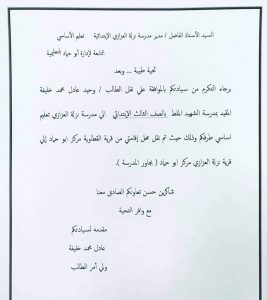 السيد الأستاذ الفاضل / مدير مدرسة نزلة العزازي الإبتدائية تعليم الأساسي
التابعة لإدارة أبو حماد التعليمية
تحية طيبة ... وبعد
برجاء التكرم من سيادتكم بالموافقة على نقل الطالب / وحيد عادل محمد خليفة
المقيد بمدرسة الشهيد بالصف الثالث الإبتدائي الي مدرسة نزلة العزازي تعليم
اساسي طرفكم وذلك حيث تم نقل محل إقامتي من قرية القطاوية مركز ابو حماد إلي
قرية نزلة العزازي مركز ابو حماد ( بجاور المدرسة ).
شاكرين حسن تعاونكم الصادق معنا
مع وافر التحية
مقدمه لسيادتكم
عادل محمد خليفة
ولي أمر الطالب